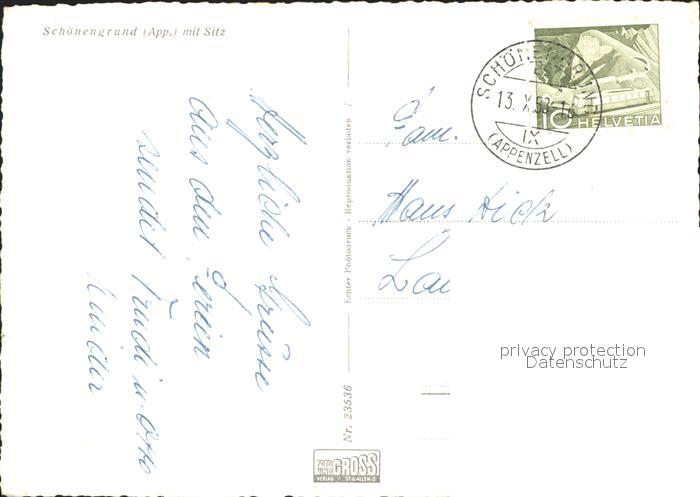 Schönengrund (App.) mit Sitz
Herzliche Grüsse
aus den Ferien
sendet Trudi u. Otto
Echter Photodruck - Reproduktion verboten /
Nr. 23536
GROSS
VERLAG ST. GALLEN
SCHÖNENGRUND
13. X. 53-16
IX
(APPENZELL)
10 HELVETIA
Fam.
Hans Dick
Lau
privacy protection
Datenschutz